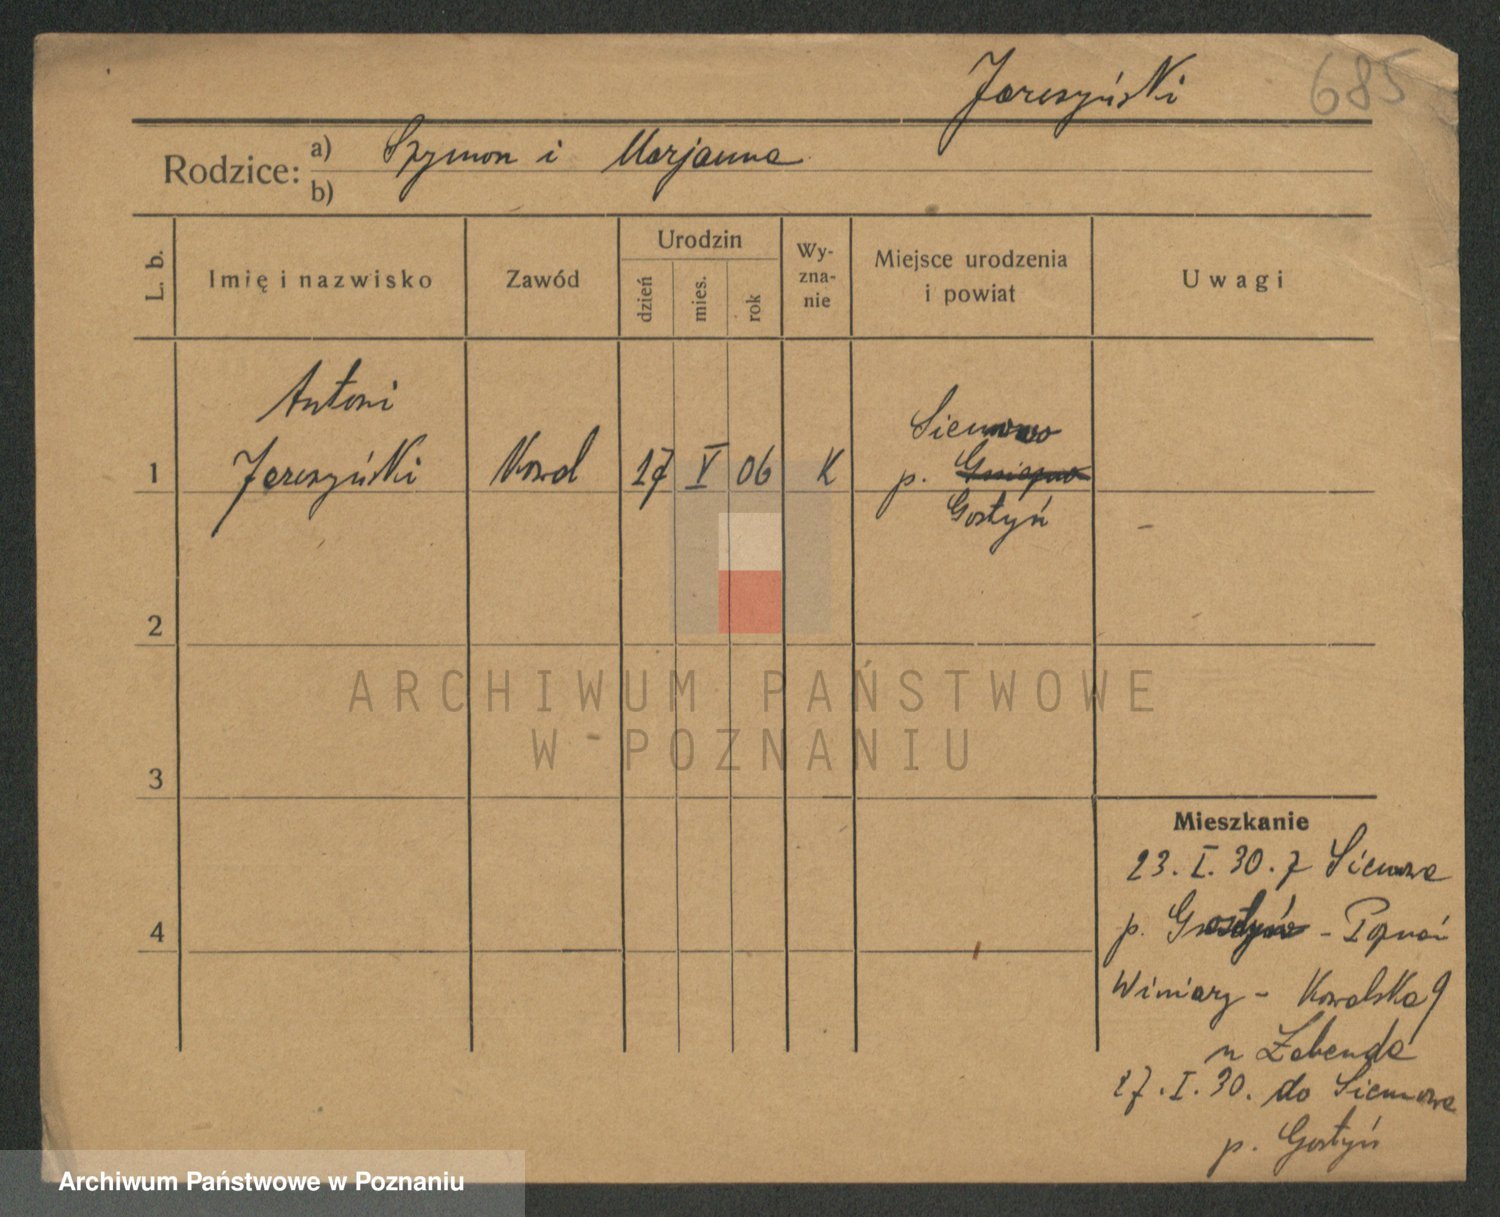 Jareszyński
685
Rodzice:
a) Szymon i Marjanna
b)
L. b.
Imię i nazwisko
Zawód
Urodzin
dzień
mies.
rok
Wy-
zna-
nie
Miejsce urodzenia
i powiat
Uwagi
Antoni
1 Jareszyński Kowal 17 V 06 K
Siemowo
p. Gniezno
Gostyń
2
3
4
ARCHIWUM PAŃSTWOWE
W POZNANIU
Mieszkanie
23. I. 30. z Siemowa
p. Gostyń - Poznań
Winiary - Kowalska 9
u Zabenda
27. I. 30. do Siemowa
p. Gostyń
Archiwum Państwowe w Poznaniu